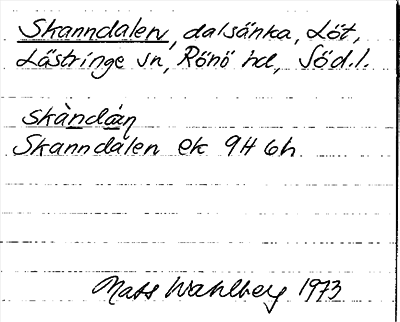 Skanndalen, dalsänka, Löt,
Lästringe sn, Rönö hd, Söd.l.
skàndáɳ
Skanndalen ek 9H 6h
Mats Wahlberg 1973